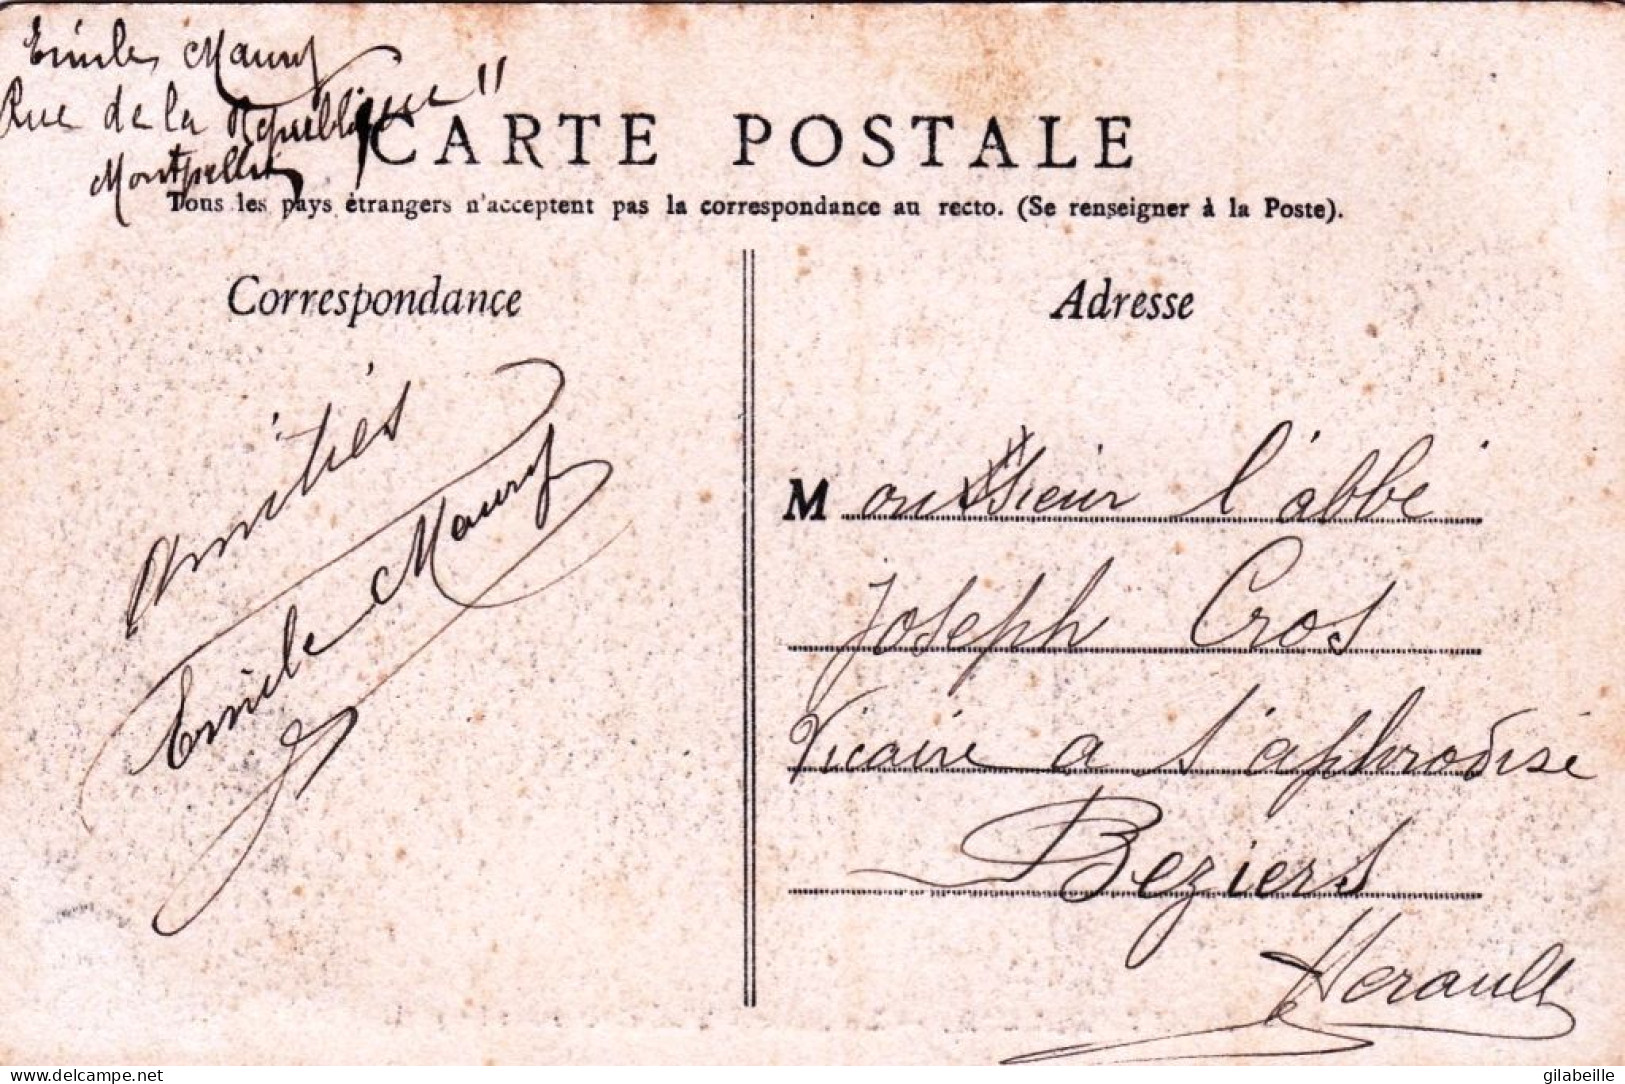 Emile Maury
Rue de la République 11
Montpellier
CARTE POSTALE
Tous les pays étrangers n'acceptent pas la correspondance au recto. (Se renseigner à la Poste).
Correspondance
Adresse
Amitiés
Emile Maury
Monsieur l'abbé
Joseph Cros
Vicaire a St aphrodise
Beziers
Herault
delcampe.net
gilabeille